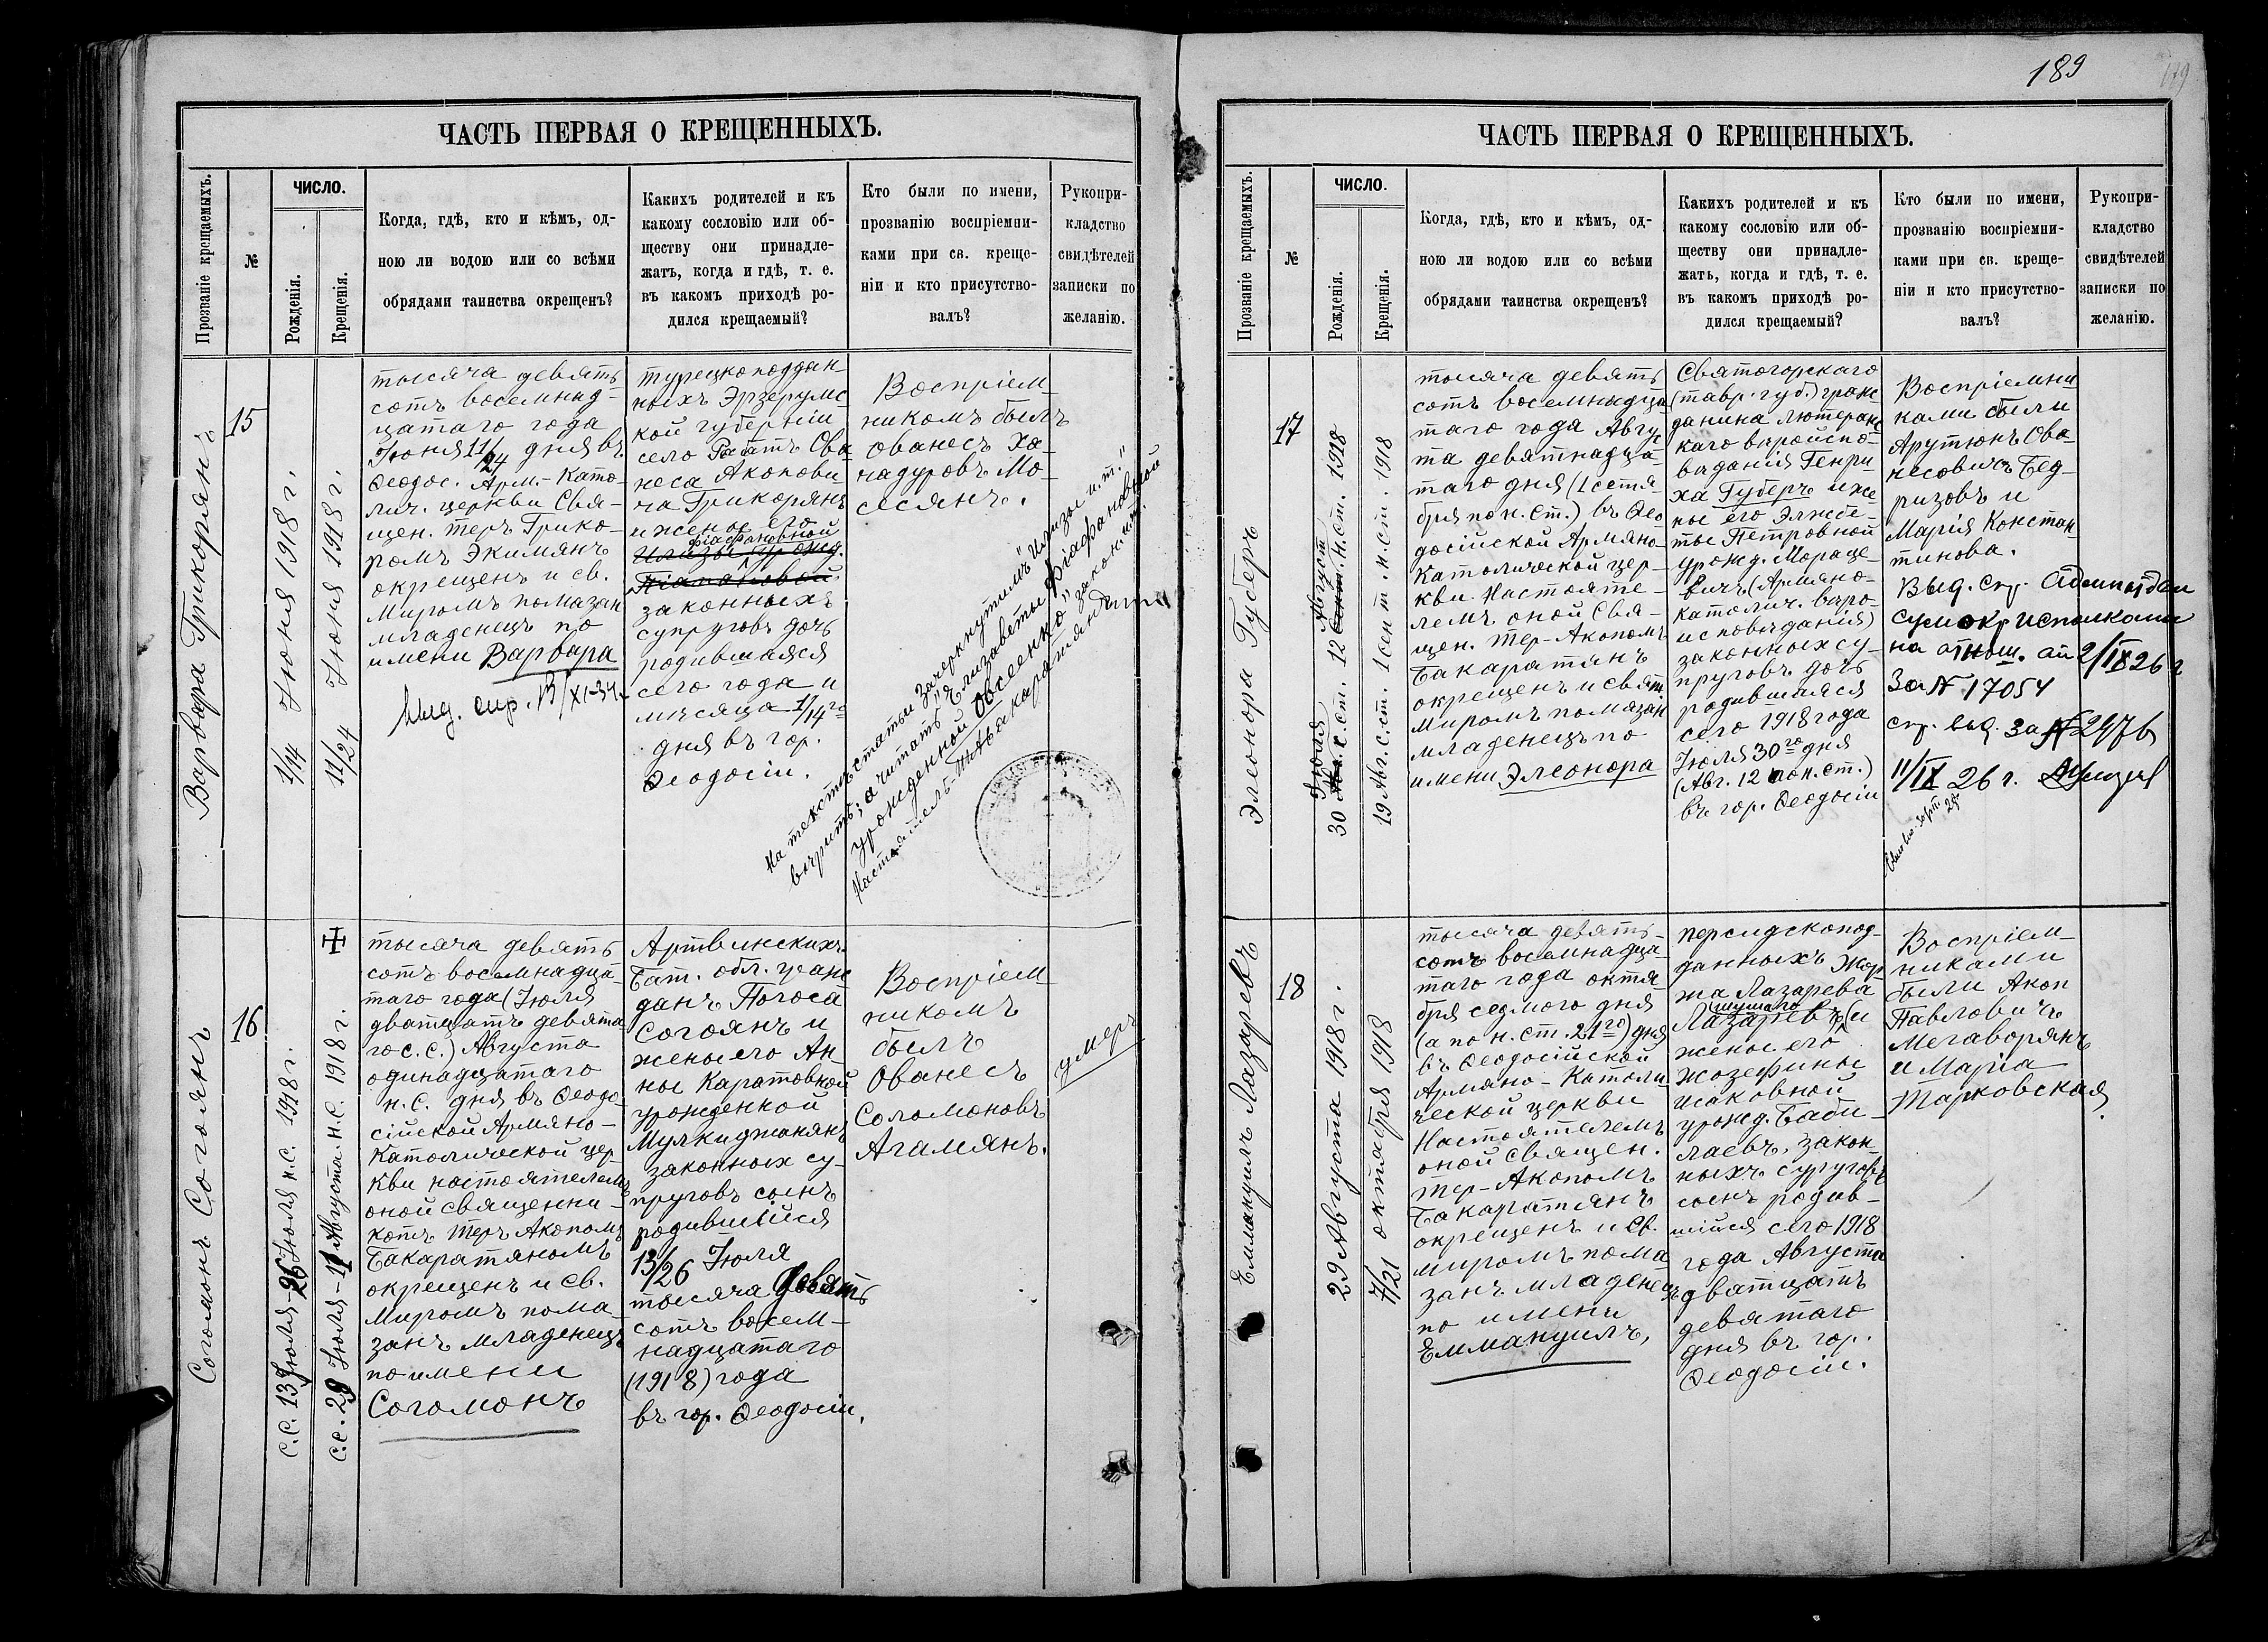 189
ЧАСТЬ ПЕРВАЯ О КРЕЩЕННЫХЪ.
Прозваніе крещаемыхъ.
№
ЧИСЛО.
Рожденія.
Крещенія.
Когда, гдѣ, кто и кѣмъ, од-
ною ли водою или со всѣми
обрядами таинства окрещенъ?
Какихъ родителей и къ
какому сословію или об-
ществу они принадле-
жатъ, когда и гдѣ, т. е.
въ какомъ приходѣ ро-
дился крещаемый?
Кто были по имени,
прозванію воспріемни-
ками при св. креще-
ніи и кто присутство-
валъ?
Рукопри-
кладство
свидѣтелей
записки по
желанію.
Варвара Грикорянъ
15
1/14 Іюня 1918 г.
11/24 Іюня 1918 г.
тысяча девять
сотъ восемнад-
цатаго года
Іюня 11/24 дня въ
Ѳеодос. Арм.-Като-
лич. церкви Свя-
щен. теръ Грико-
ромъ Экимянъ
окрещенъ и св.
Миромъ помазан
младенецъ по
имени Варвара
Выд. спр. XI-34
турецкоподдан-
ныхъ Эрзерумс-
кой губерніи
село Рабатъ Ова-
неса Акопови-
ча Грикорянъ
и жены его
Фіафановной
Илизы урожд.
законныхъ
супруговъ дочь
родившаяся
сего года и
мѣсяца 1/14го
дня въ гор.
Ѳеодосіи.
Воспріем-
никомъ былъ
Ованесъ Ха-
чадуровъ Мо-
сесянъ.
На текстъ статьи зачеркнутимъ „Илизы и.т."
вѣрить; а читать „Елизаветы Фіафановной
урожденной Овсеенко" закон. и т.
Настоятель-Т. Ак. Бакаратянъ
Согомонъ Согоянъ
16
с.с. 13 Іюля - 26 Іюля н.с. 1918 г.
с.с. 29 Іюля - 11 Августа н.с. 1918 г.
тысяча девять
сотъ восемнадца-
таго года (Іюля
дватцать девята
го с.с.) Августа
одинадцатаго
н.с. дня въ Ѳеодо-
сійской Армяно-
Католической цер-
кви настоятелемъ
оной священни-
комъ Теръ Акопомъ
Бакаратяномъ
окрещенъ и Св.
Миромъ пома
занъ младенецъ
по имени
Согомонъ
Артвинскихъ
Бат. обл. граж
данъ Погоса
Согоянъ и
жены его Ан-
ны Каратовной
урожденной
Мулкиджанянъ
законныхъ су-
пруговъ сынъ
родившійся
13/26 Іюля
тысяча девять
сотъ восем-
надцатаго
(1918) года
въ гор. Ѳеодосіи.
Воспріем-
никомъ
былъ
Ованесъ
Соломоновъ
Агамянъ.
умеръ
ЧАСТЬ ПЕРВАЯ О КРЕЩЕННЫХЪ.
Прозваніе крещаемыхъ.
№
ЧИСЛО.
Рожденія.
Крещенія.
Когда, гдѣ, кто и кѣмъ, од-
ною ли водою или со всѣми
обрядами таинства окрещенъ?
Какихъ родителей и къ
какому сословію или об-
ществу они принадле-
жатъ, когда и гдѣ, т. е.
въ какомъ приходѣ ро-
дился крещаемый?
Кто были по имени,
прозванію воспріемни-
ками при св. креще-
ніи и кто присутство-
валъ?
Рукопри-
кладство
свидѣтелей
записки по
желанію.
Элеонора Губеръ
17
30 Іюля с.ст. 12 Август н.ст. 1918
19 Авг. с.ст. 1 сент. н.ст. 1918
тысяча девять
сотъ восемнадца
таго года Авгус
та девятнадца-
таго дня (1 сентя-
бря по н. ст.) въ Ѳео
досійской Армяно-
Католической цер-
кви Настояте-
лемъ оной Свя-
щен. Тер-Акопомъ
Бакаратянъ
окрещенъ и свят
Миромъ помазан
младенецъ по
имени Элеонора
Святогорскаго
(тавр. губ.) граж
данина лютеранс
каго вѣроиспо-
вѣданія Генри-
ха Губеръ и же
ны его Элизбе-
ты Петровной
урожд. Мораце-
вичъ (Армяно-
католич. вѣро-
исповѣданія)
законныхъ су-
пруговъ дочь
родившаяся
сего 1918 года
Іюля 30го дня
(Авг. 12 по н. ст.)
въ гор. Ѳеодосіи
Воспріемни
ками были
Арутюнъ Ова
несовичъ Бед-
ризовъ и
Марія Констан
тинова.
Выд. спр. Админотдел
Сумокрисполкома
на отнош. от 2/IX 26 г
за № 17054
спр. выд. за № 2976
11/IX 26 г.
Еммануилъ Лазаревъ
18
29 Августа 1918 г.
7/21 октября 1918
тысяча девять-
сотъ восемнадца-
таго года октя-
бря седмого дня
(а по н. ст. 21го) дня
въ Ѳеодосійской
Армяно-Католи
ческой церкви
Настоятелемъ
оной Священ.
Тер-Акопомъ
Бакаратянъ
окрещенъ и Св.
миромъ пома
занъ младенецъ
по имени
Еммануилъ,
персидскопод-
данныхъ Жор
жа Лазарева
Лазаревъ (и
жены его
Жозефины
Исаковной
урожд. Баби-
лаевъ, закон-
ныхъ супруговъ
сынъ родив-
шійся сего 1918
года Августа
дватцать
девятаго
дня въ гор.
Ѳеодосіи.
Воспріем-
никами
были Акоп
Павловичъ
Мегаворянъ
и Марія
Тарковская.